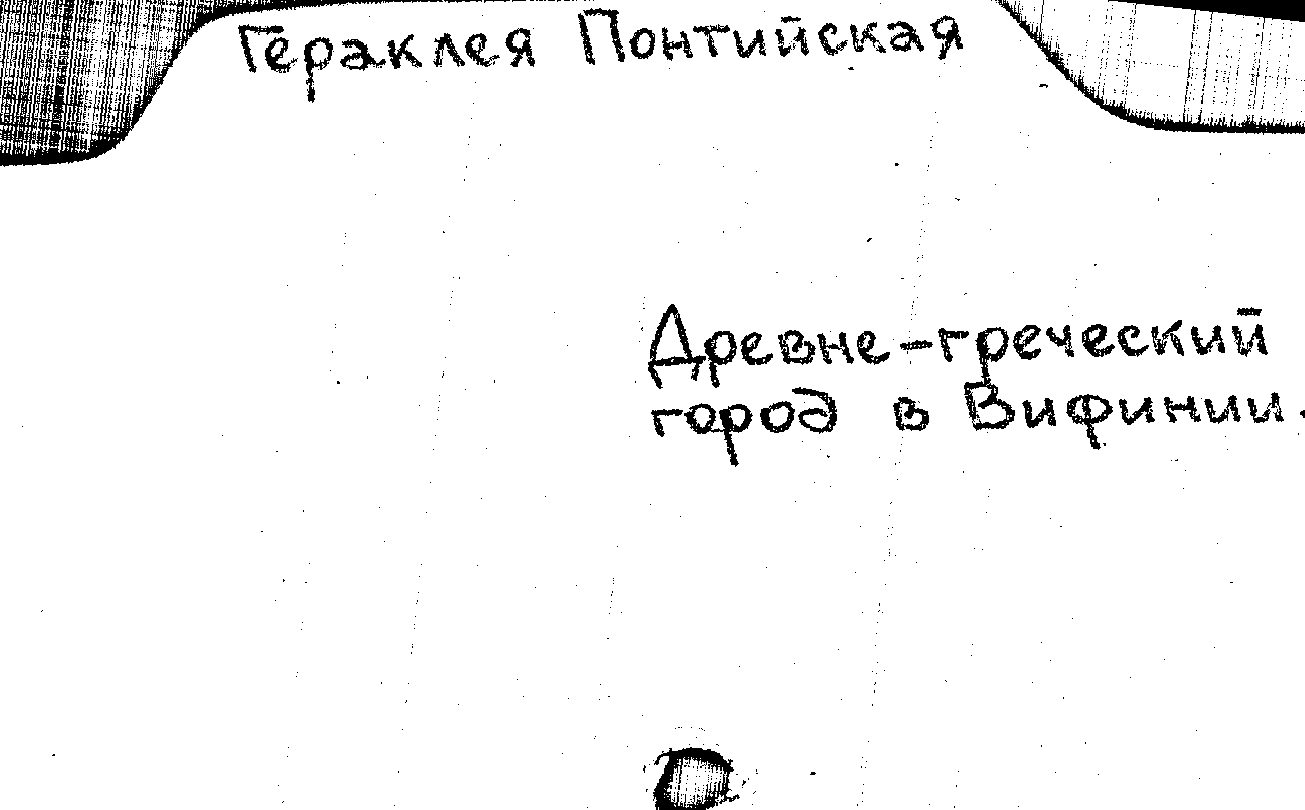 Гераклея Понтийская
Древне-греческий
город в Вифинии.